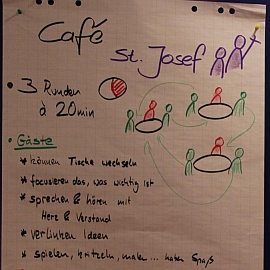 Café
St. Josef
• 3 Runden
à 20min
• Gäste
* können Tische wechseln
* focusieren das, was wichtig ist
* sprechen & hören mit
Herz & Verstand
* verlinken Ideen
* spielen, kritzeln, malen ... haben Spaß